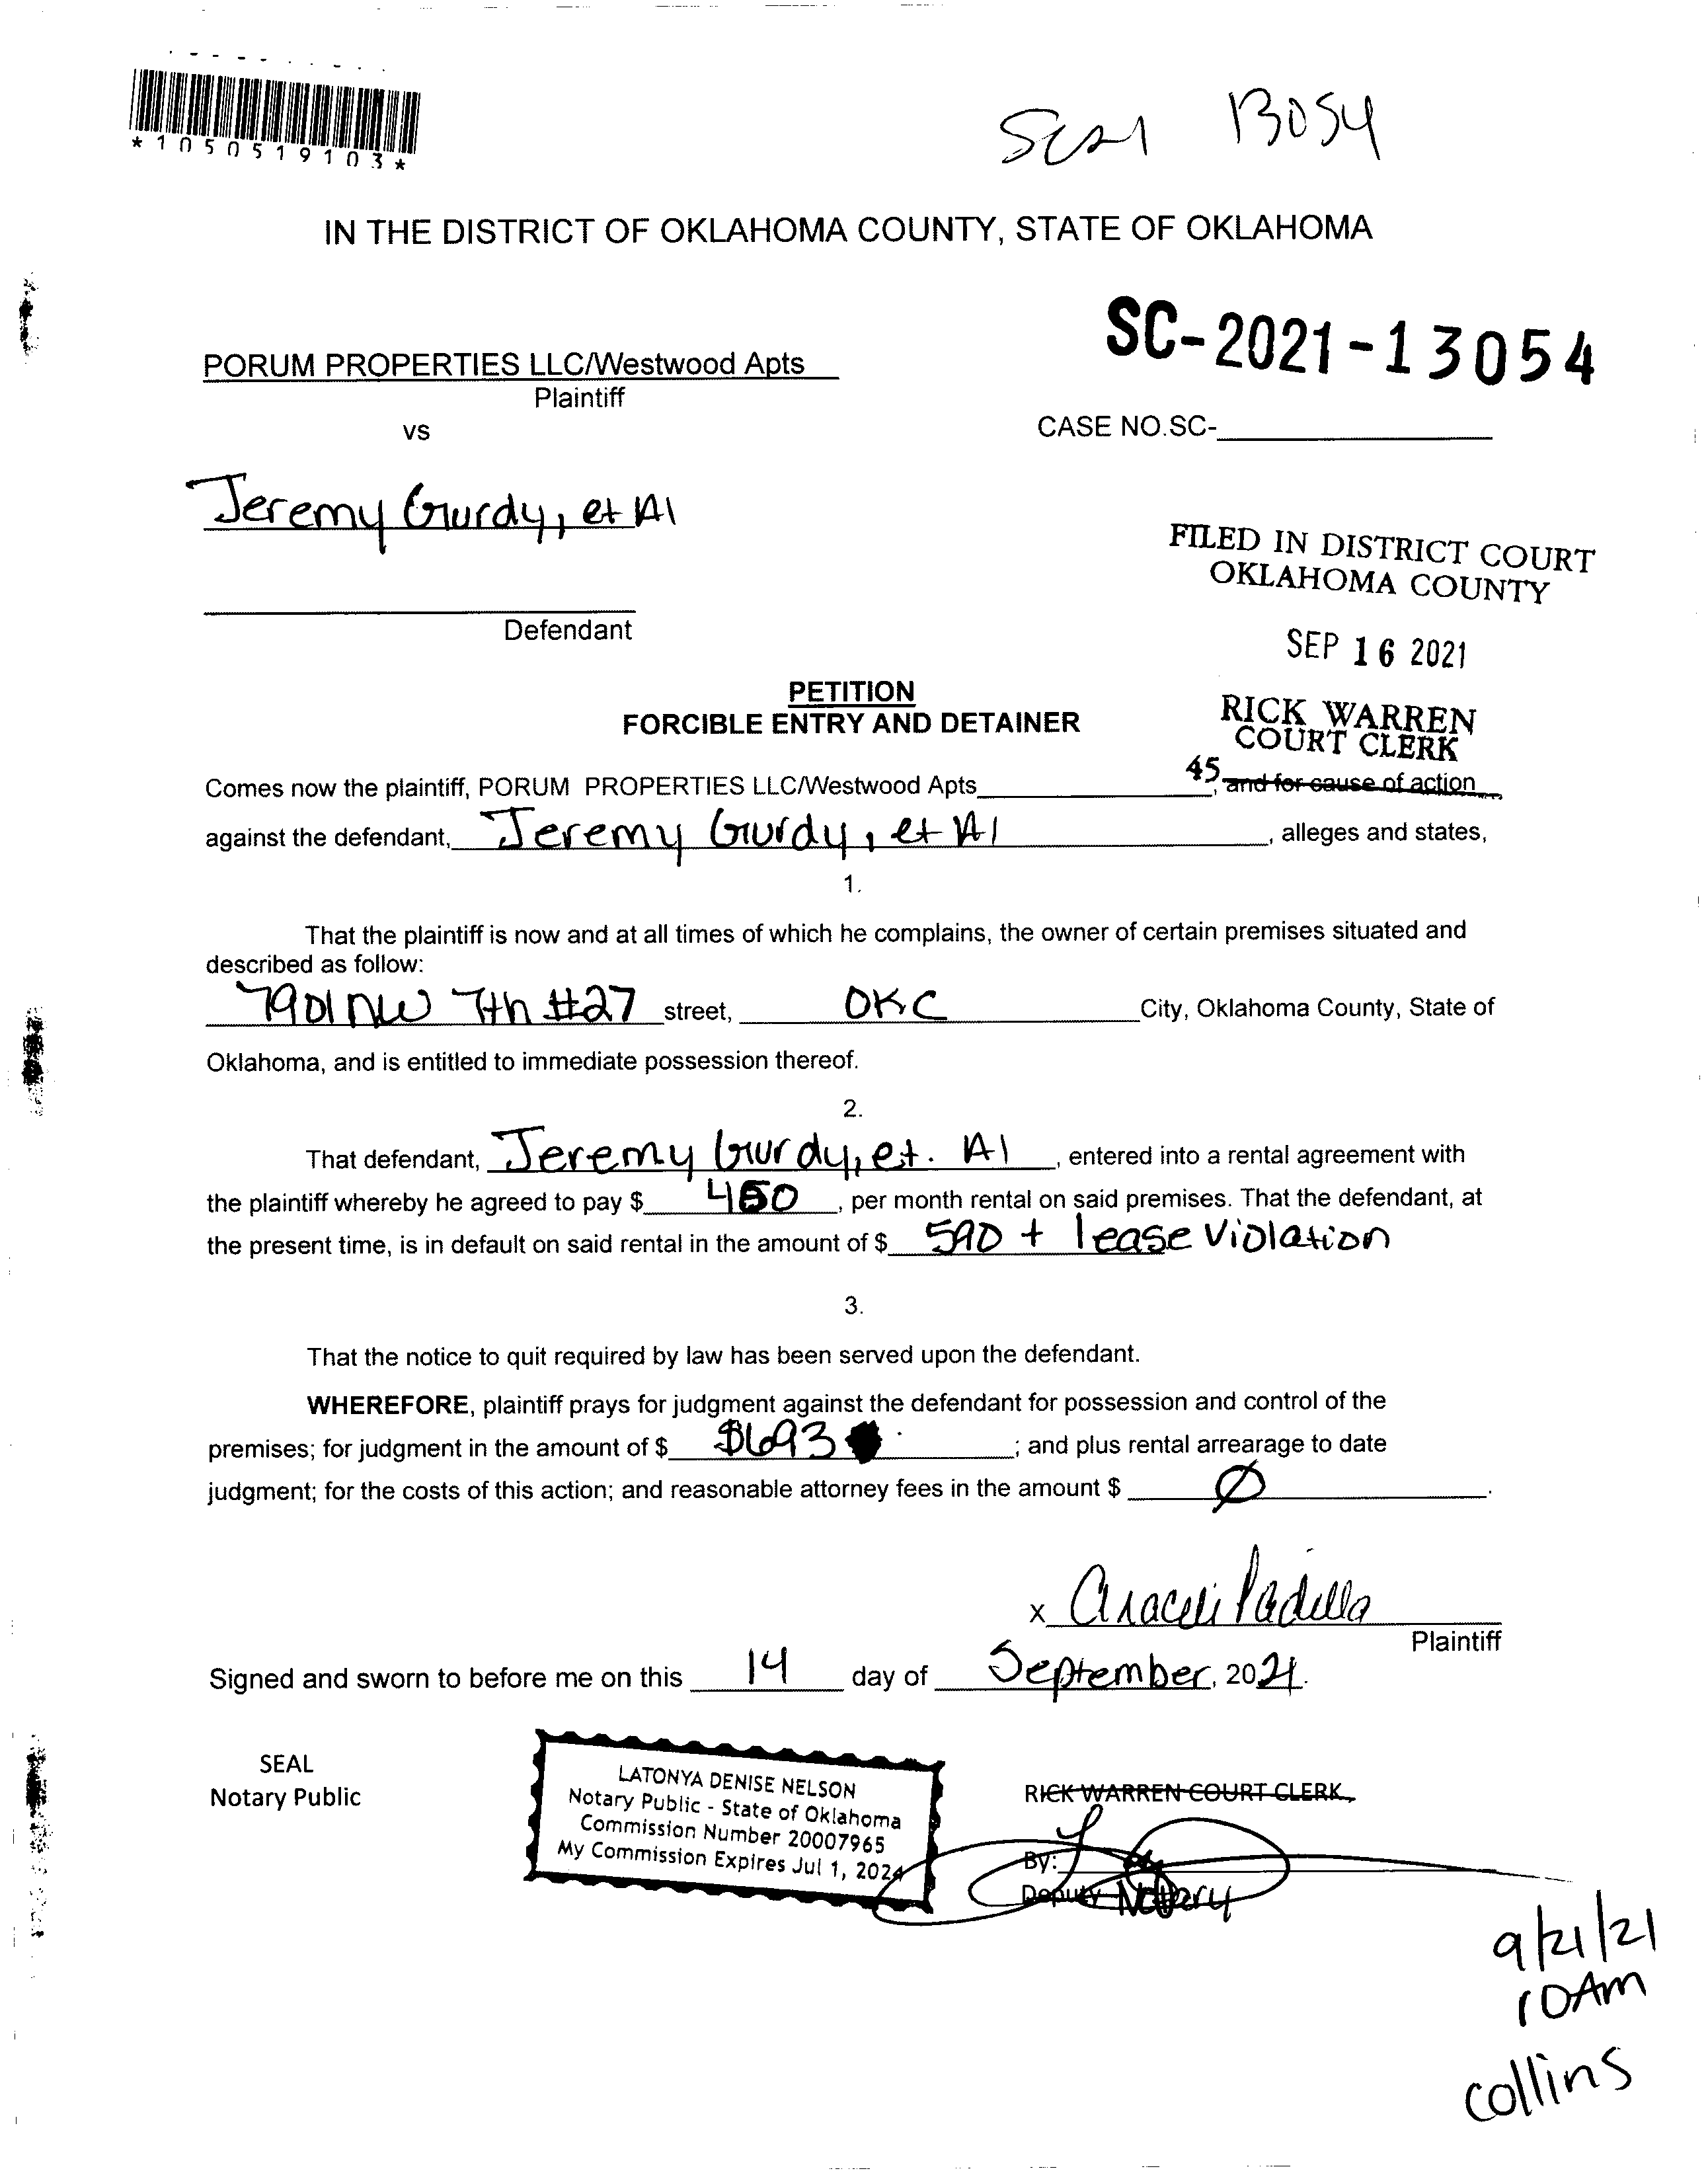 *1050519103*
SC21 13054
IN THE DISTRICT OF OKLAHOMA COUNTY, STATE OF OKLAHOMA
SC-2021-13054
PORUM PROPERTIES LLC/Westwood Apts
Plaintiff
vs
CASE NO.SC-
Jeremy Gurdy, et Al
Defendant
FILED IN DISTRICT COURT
OKLAHOMA COUNTY
SEP 16 2021
RICK WARREN
COURT CLERK
45
PETITION
FORCIBLE ENTRY AND DETAINER
Comes now the plaintiff, PORUM PROPERTIES LLC/Westwood Apts , and for cause of action
against the defendant, Jeremy Gurdy, et Al , alleges and states,
1.
That the plaintiff is now and at all times of which he complains, the owner of certain premises situated and
described as follow:
7901 NW 7th #27 street, OKC City, Oklahoma County, State of
Oklahoma, and is entitled to immediate possession thereof.
2.
That defendant, Jeremy Gurdy, et. Al , entered into a rental agreement with
the plaintiff whereby he agreed to pay $ 450 , per month rental on said premises. That the defendant, at
the present time, is in default on said rental in the amount of $ 590 + lease violation
3.
That the notice to quit required by law has been served upon the defendant.
WHEREFORE, plaintiff prays for judgment against the defendant for possession and control of the
premises; for judgment in the amount of $ $693 ; and plus rental arrearage to date
judgment; for the costs of this action; and reasonable attorney fees in the amount $ Ø .
x Araceli Padilla
Plaintiff
Signed and sworn to before me on this 14 day of September, 2021.
SEAL
Notary Public
LATONYA DENISE NELSON
Notary Public - State of Oklahoma
Commission Number 20007965
My Commission Expires Jul 1, 2024
RICK WARREN COURT CLERK
By:
Deputy Notary
9/21/21
10AM
Collins